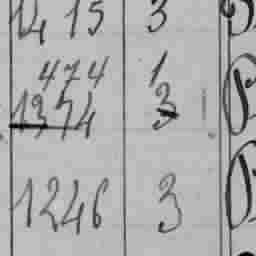 14 15 3
474 1
1374 3
1246 3